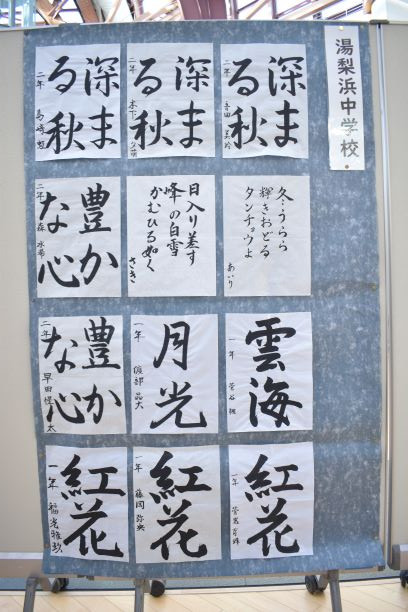 湯梨浜中学校
深ま
る秋
二年
深ま
る秋
二年
深ま
る秋
二年
久…うらら
輝きおどる
タンチョウよ
あいり
日入り差す
峰の白雪
かむひる如く
さき
豊か
な心
二年
雲海
一年
月光
一年
豊か
な心
二年 早田
紅花
一年
紅花
一年
紅花
一年